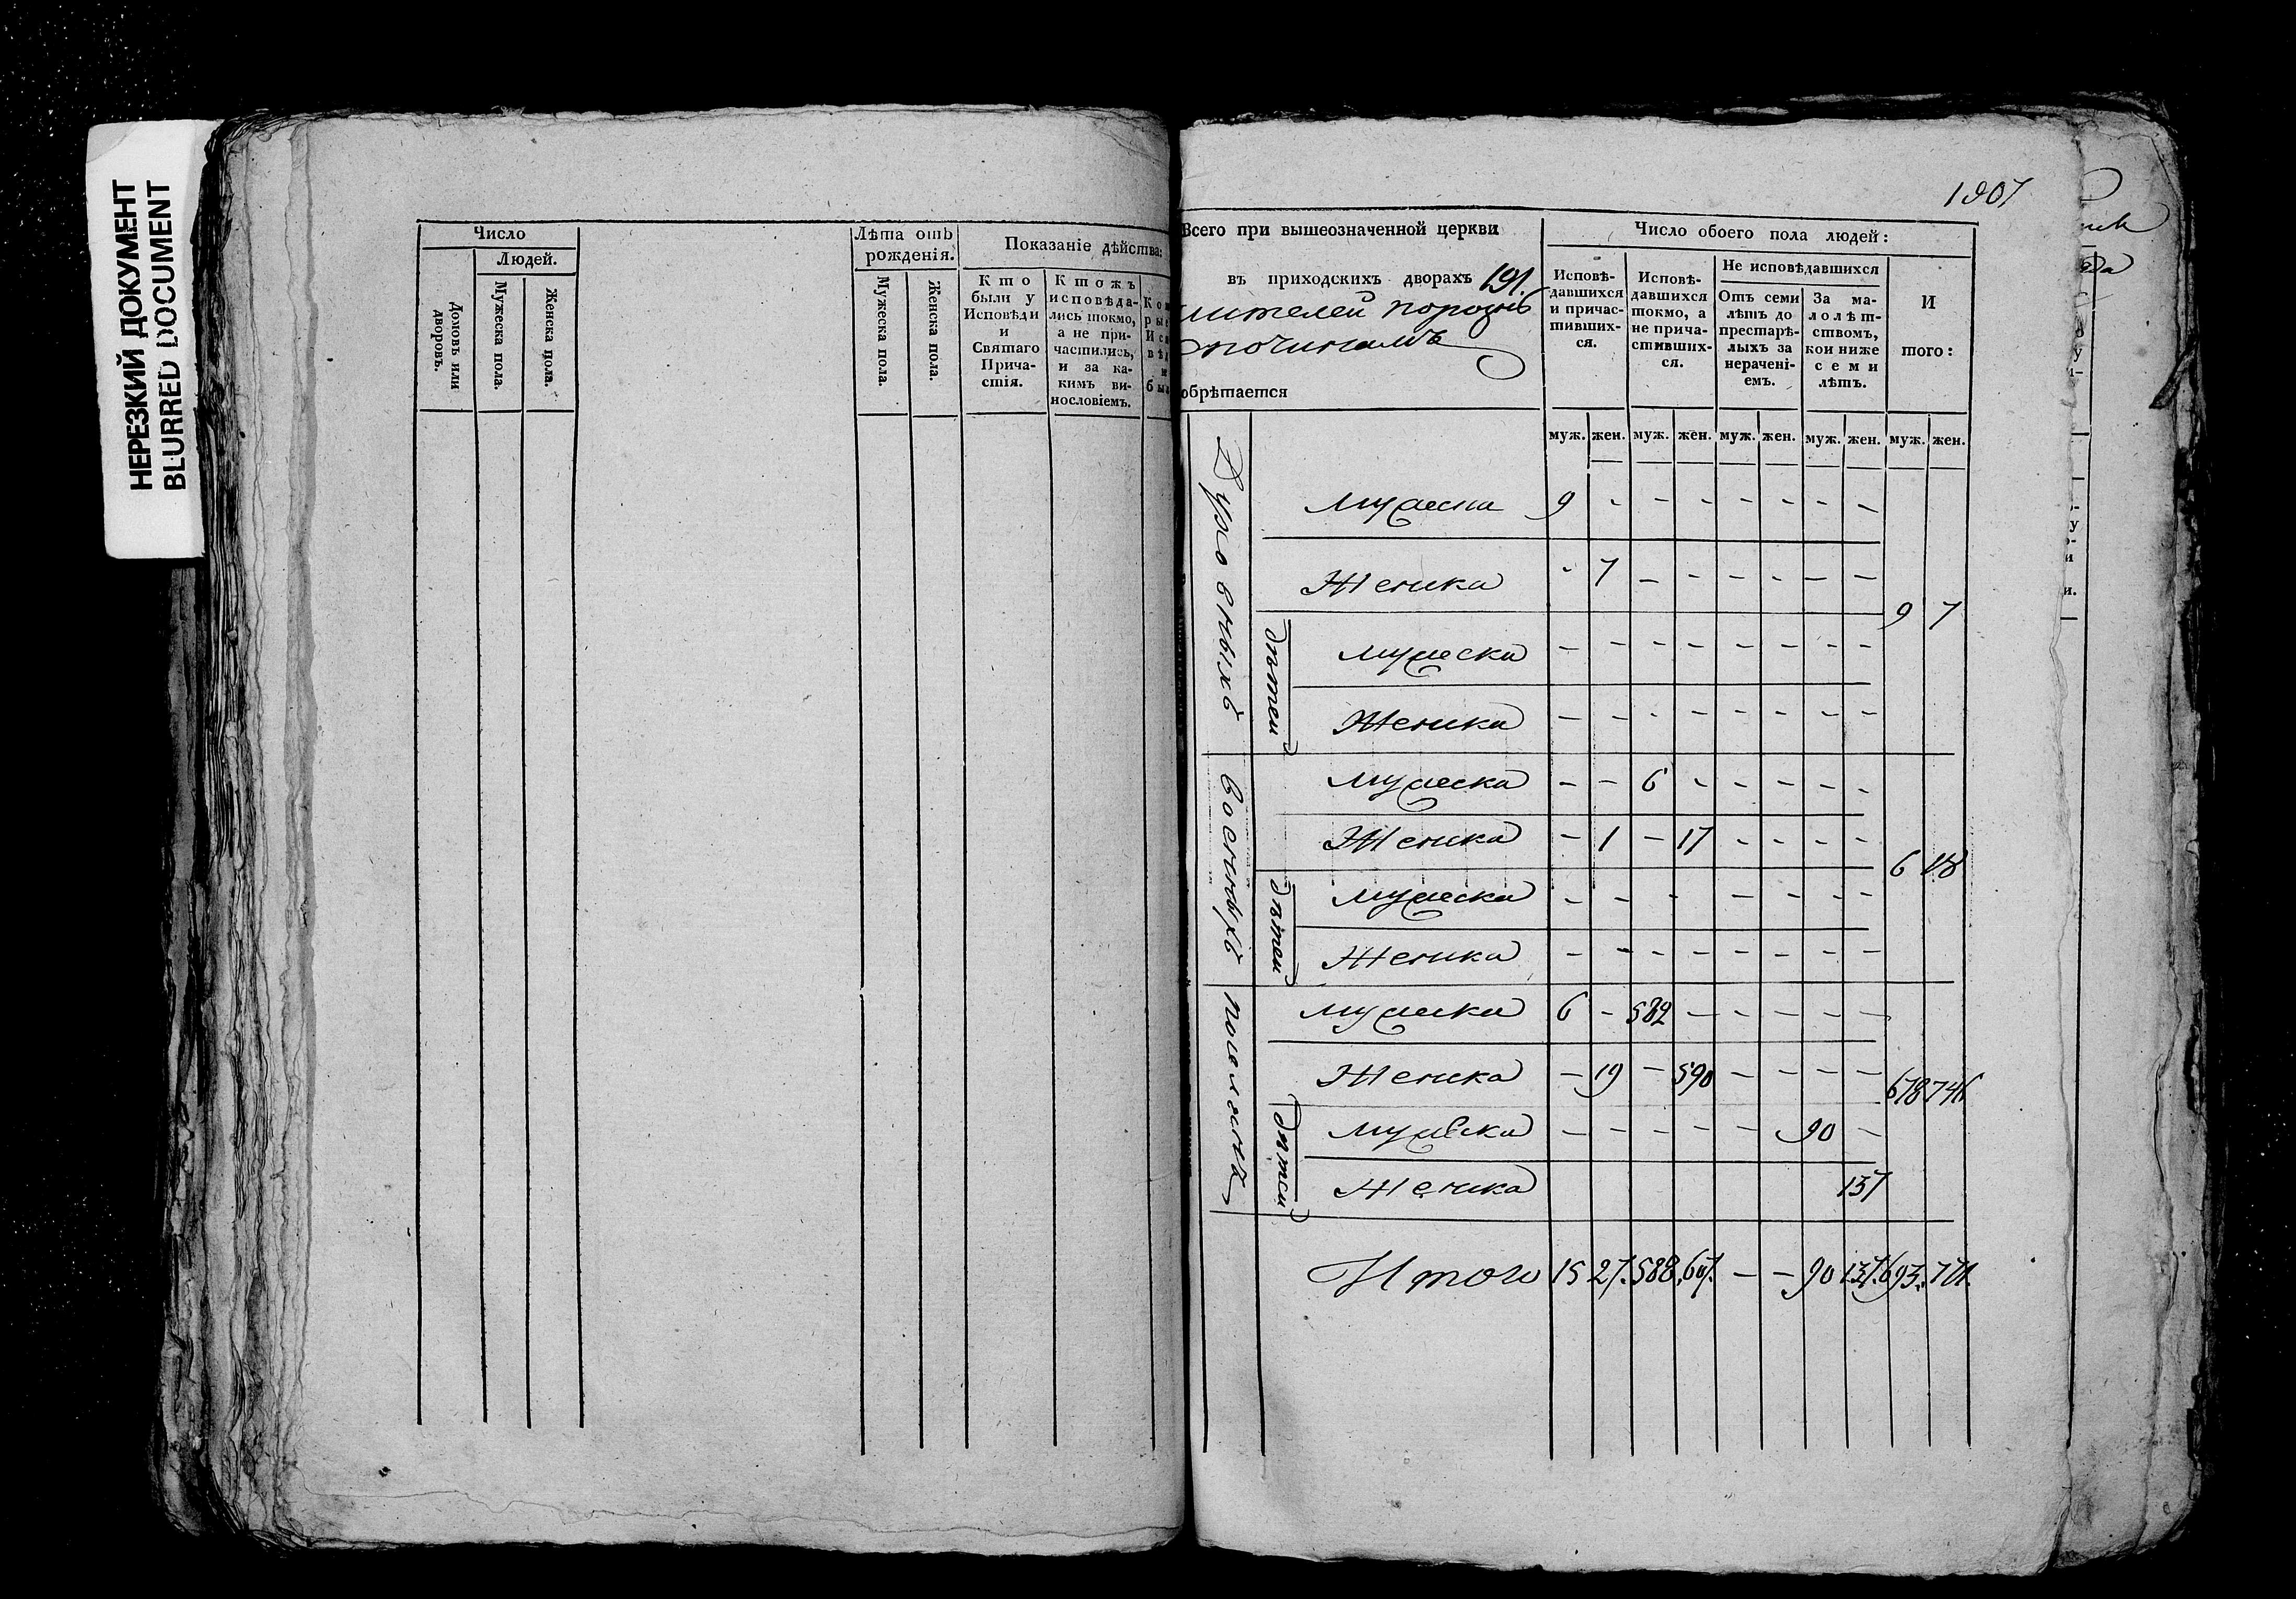 НЕРЕЗКИЙ ДОКУМЕНТ
BLURRED DOCUMENT
Число
Людей.
Домовъ или дворовъ.
Мужеска пола.
Женска пола.
Лѣта отъ рожденія.
Мужеска пола.
Женска пола.
Показаніе дѣйства:
Кто
были у
Исповѣди
и
Святаго
Прича-
стія.
Ктожъ
исповѣда-
лись токмо,
а не при-
частились,
и за ка-
кимъ ви-
нословіемъ.
1907
Всего при вышеозначенной церкви
въ приходскихъ дворахъ 191.
жителей порознь
по чинамъ
обрѣтается
Число обоего пола людей:
Исповѣ-
давшихся
и причас-
тивших-
ся.
Исповѣ-
давшихся
токмо, а
не прича-
стивших-
ся.
Не исповѣдавшихся
Отъ семи
лѣтъ до
престарѣ-
лыхъ за
нерачені-
емъ.
За ма-
лолѣт-
ствомъ,
кои ниже
семи
лѣтъ.
И
того:
муж. жен. муж. жен. муж. жен. муж. жен. муж. жен.
Духовныхъ
Мужеска 9 - - - - - - -
Женска - 7 - - - - - -
9 7
дѣтей
Мужеска - - - - - - - -
Женска - - - - - - - -
Военныхъ
Мужеска - - 6 - - - - -
Женска - 1 - 17 - - - -
6 18
дѣтей
Мужеска - - - - - - - -
Женска - - - - - - - -
поселянъ
Мужеска 6 - 582 - - - - -
Женска - 19 - 590 - - - -
678 746
дѣтей
Мужеска - - - - - - 90 -
Женска 137
Итого 15 27. 588. 607. - - 90 137. 693. 771.